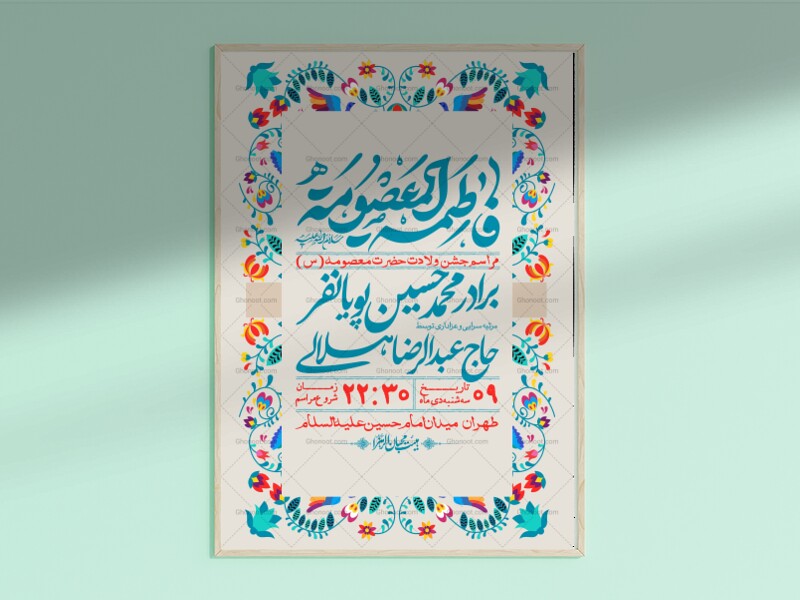 فاطمة المعصومة
سلام الله علیها
مراسم جشن ولادت حضرت معصومه (س)
برادر محمدحسین پویانفر
مرثیه سرایی و عزاداری توسط
حاج عبدالرضا هلالی
۰۹ تاریخ سه شنبه دی ماه ۲۲:۳۰ زمان شروع مراسم
طهران میدان امام حسین علیه السلام
Ghonoot.com